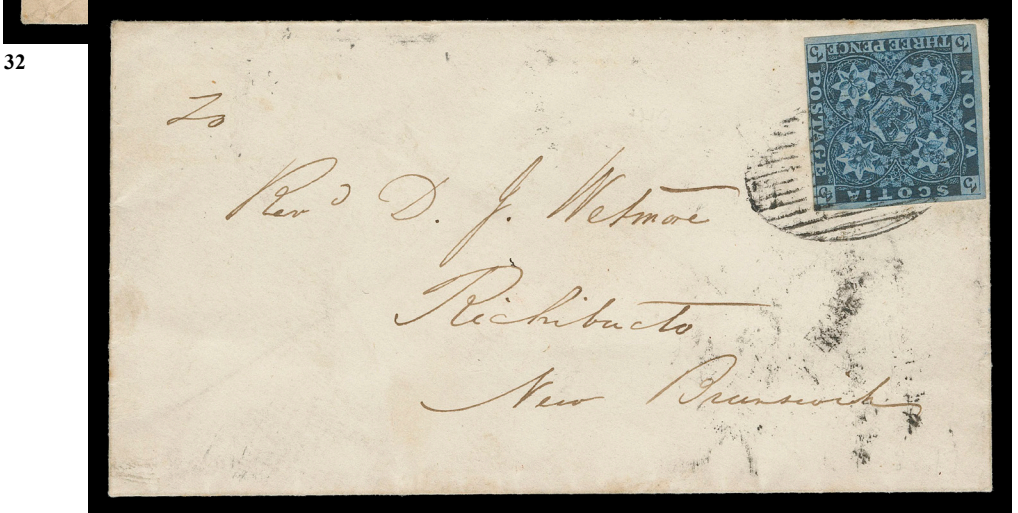 32
To
Revᵈ D. J. Wetmore
Richibucto
New Brunswick
THREE PENCE
NOVA
SCOTIA
POSTAGE
3
3
3
3